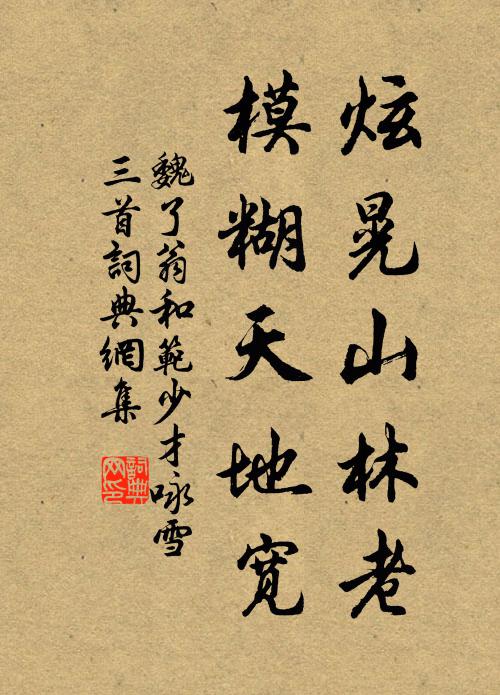 炫晃山林老
模糊天地宽
魏了翁和範少才咏雪
三首詞典網集
詞典
网印